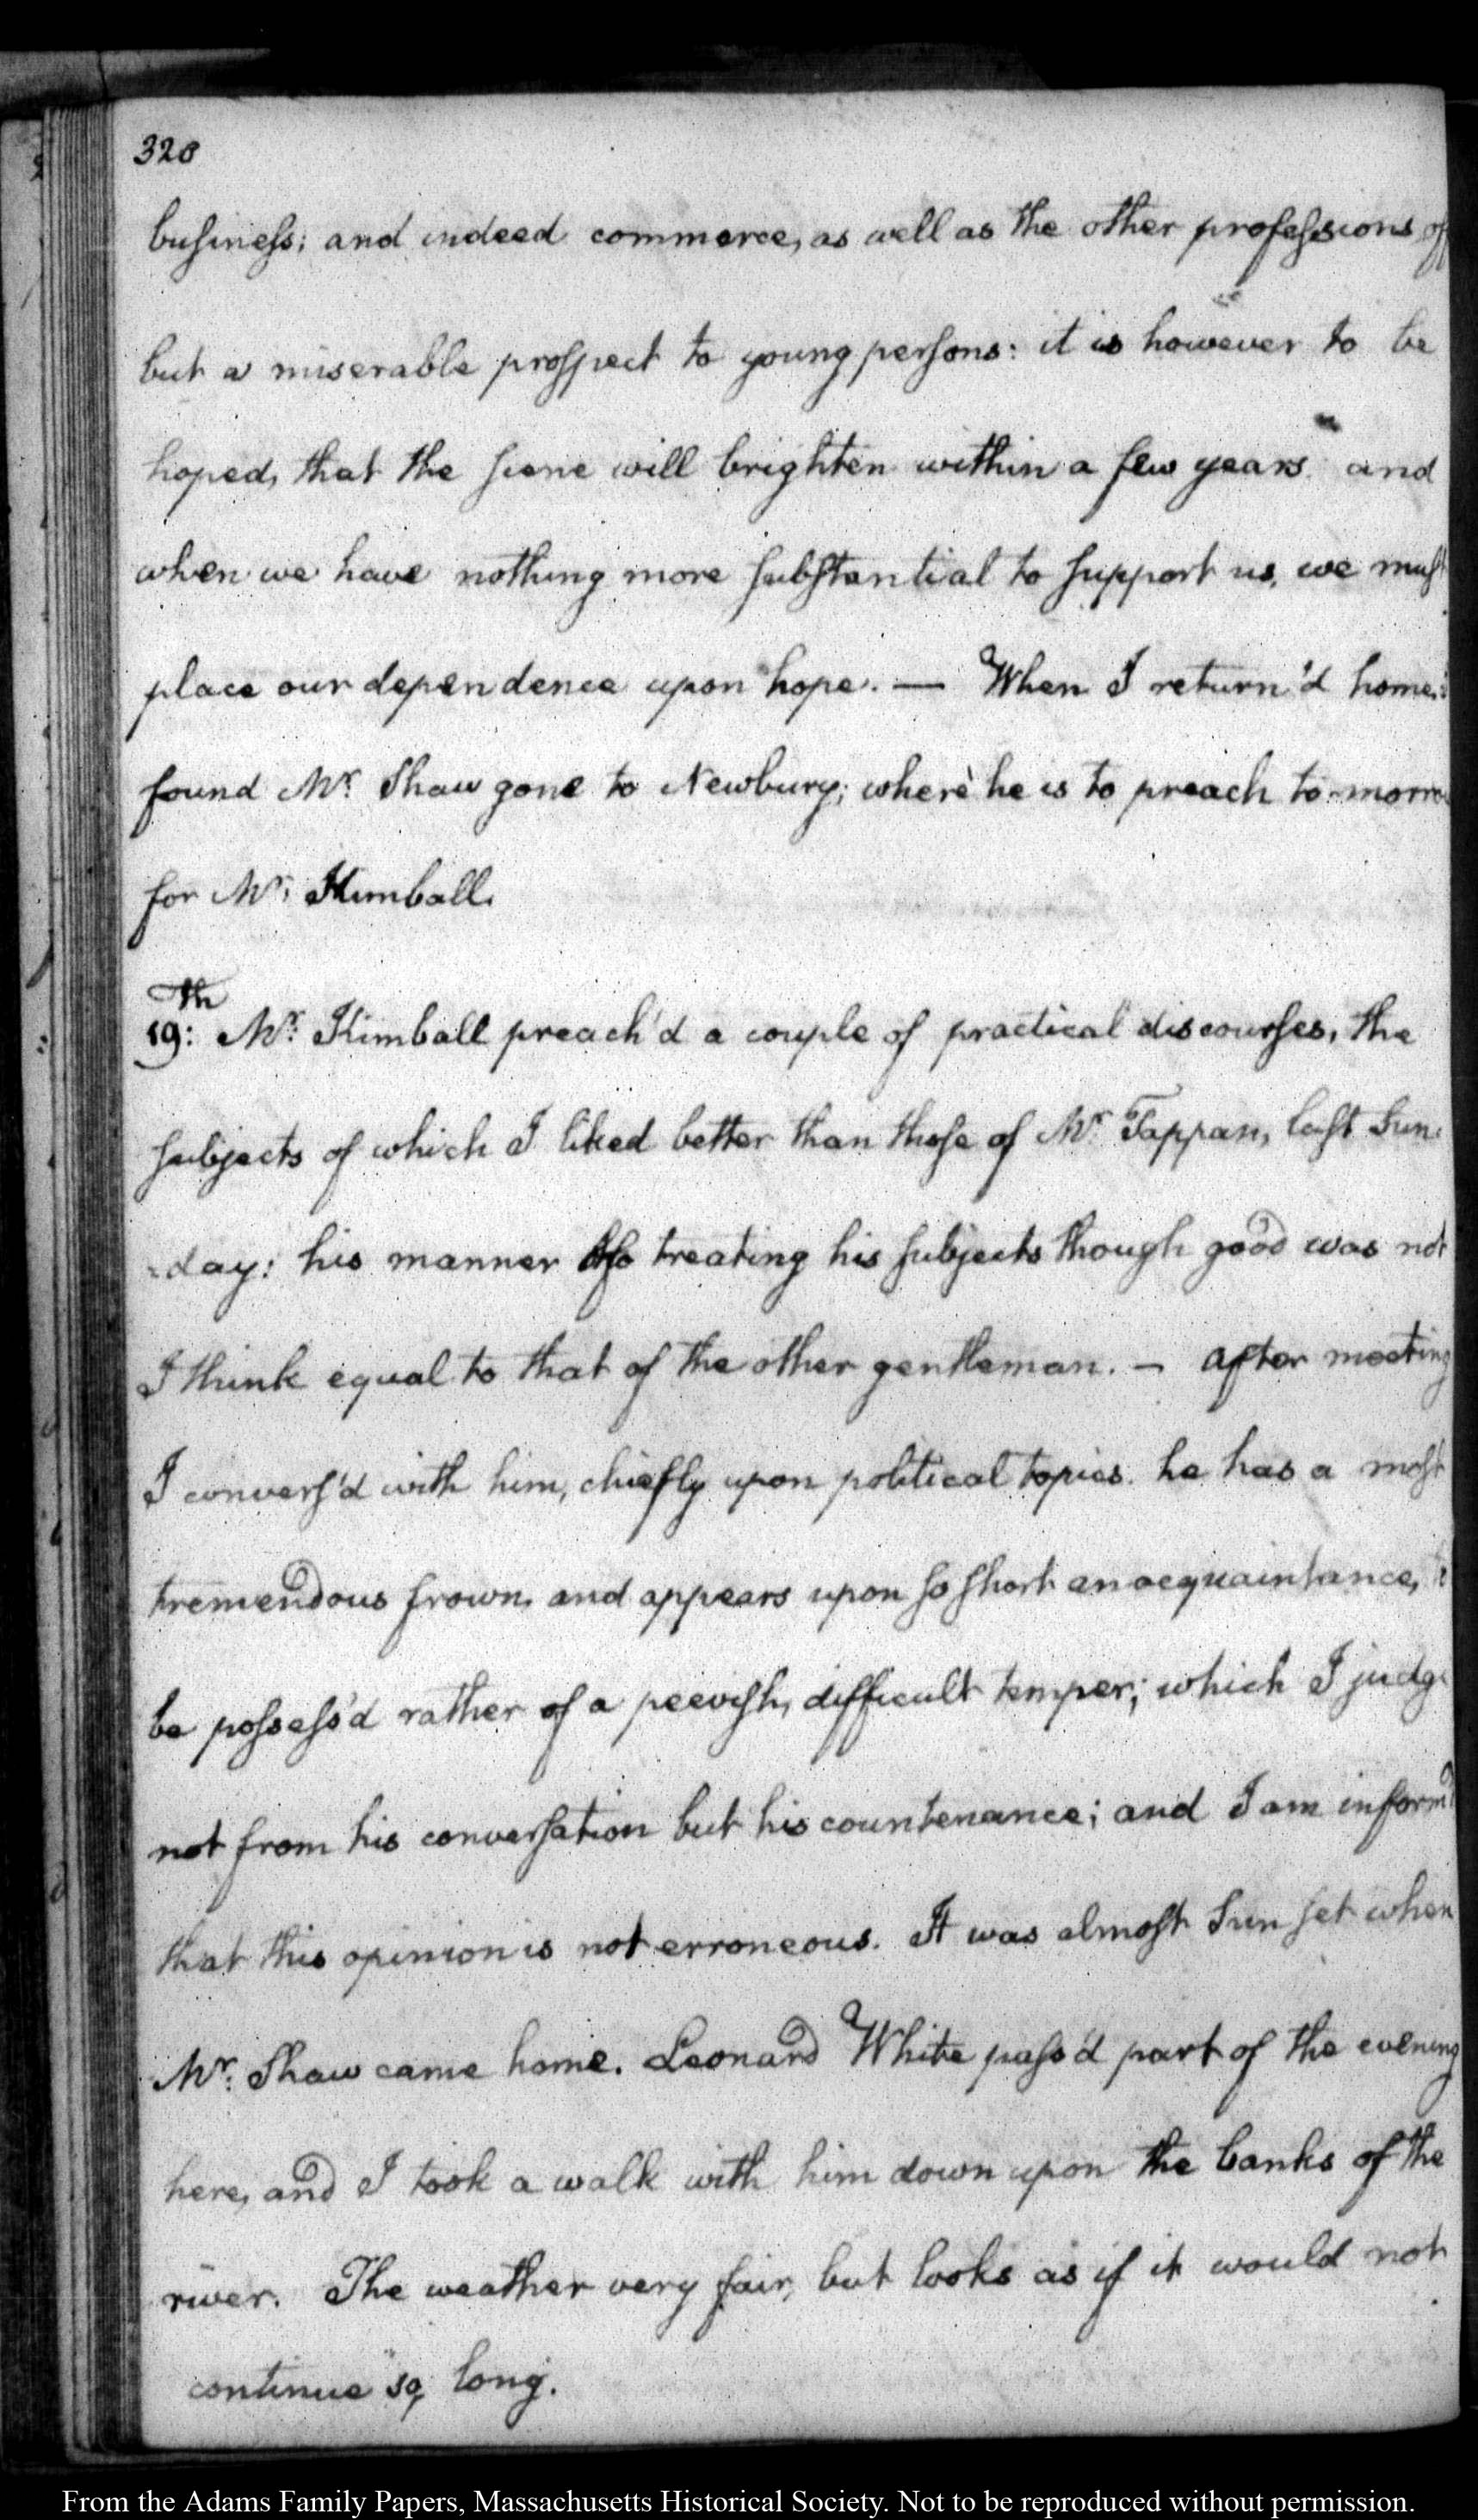 320
business; and indeed commerce, as well as the other professions of
but a miserable prospect to young persons: it is however to be
hoped, that the scene will brighten within a few years and
when we have nothing more substantial to support us, we must
place our dependence upon hope. — When I return'd home,
found Mr. Shaw gone to Newbury; where he is to preach to-morro
for Mr. Kimball.
19th: Mr. Kimball preach'd a couple of practical discourses, the
subjects of which I liked better than those of Mr. Tappan, last Sun-
-day: his manner of treating his subjects though good was not
I think equal to that of the other gentleman. — after meeting
I convers'd with him, chiefly upon political topics. he has a most
tremendous frown, and appears upon so short an acquaintance,
be possess'd rather of a peevish, difficult temper; which I judge
not from his conversation but his countenance; and I am inform'd
that this opinion is not erroneous. It was almost Sun set when
Mr. Shaw came home. Leonard White pass'd part of the evening
here, and I took a walk with him down upon the banks of the
river. The weather very fair, but looks as if it would not
continue so, long.
From the Adams Family Papers, Massachusetts Historical Society. Not to be reproduced without permission.